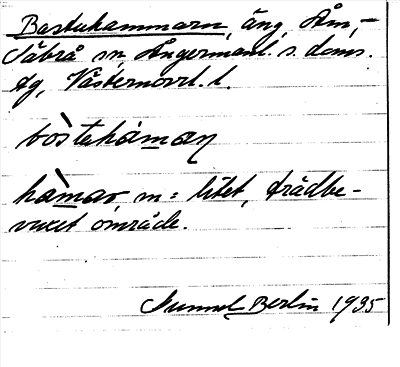 Bastuhammarn, äng, Åm,-
Säbrå sn, Ångermanl. s. doms.
dg, Västernorrl. l.
bòstehåman
hàmar, m: litet, trädbe-
vuxet område.
Gunnel Berlin 1935